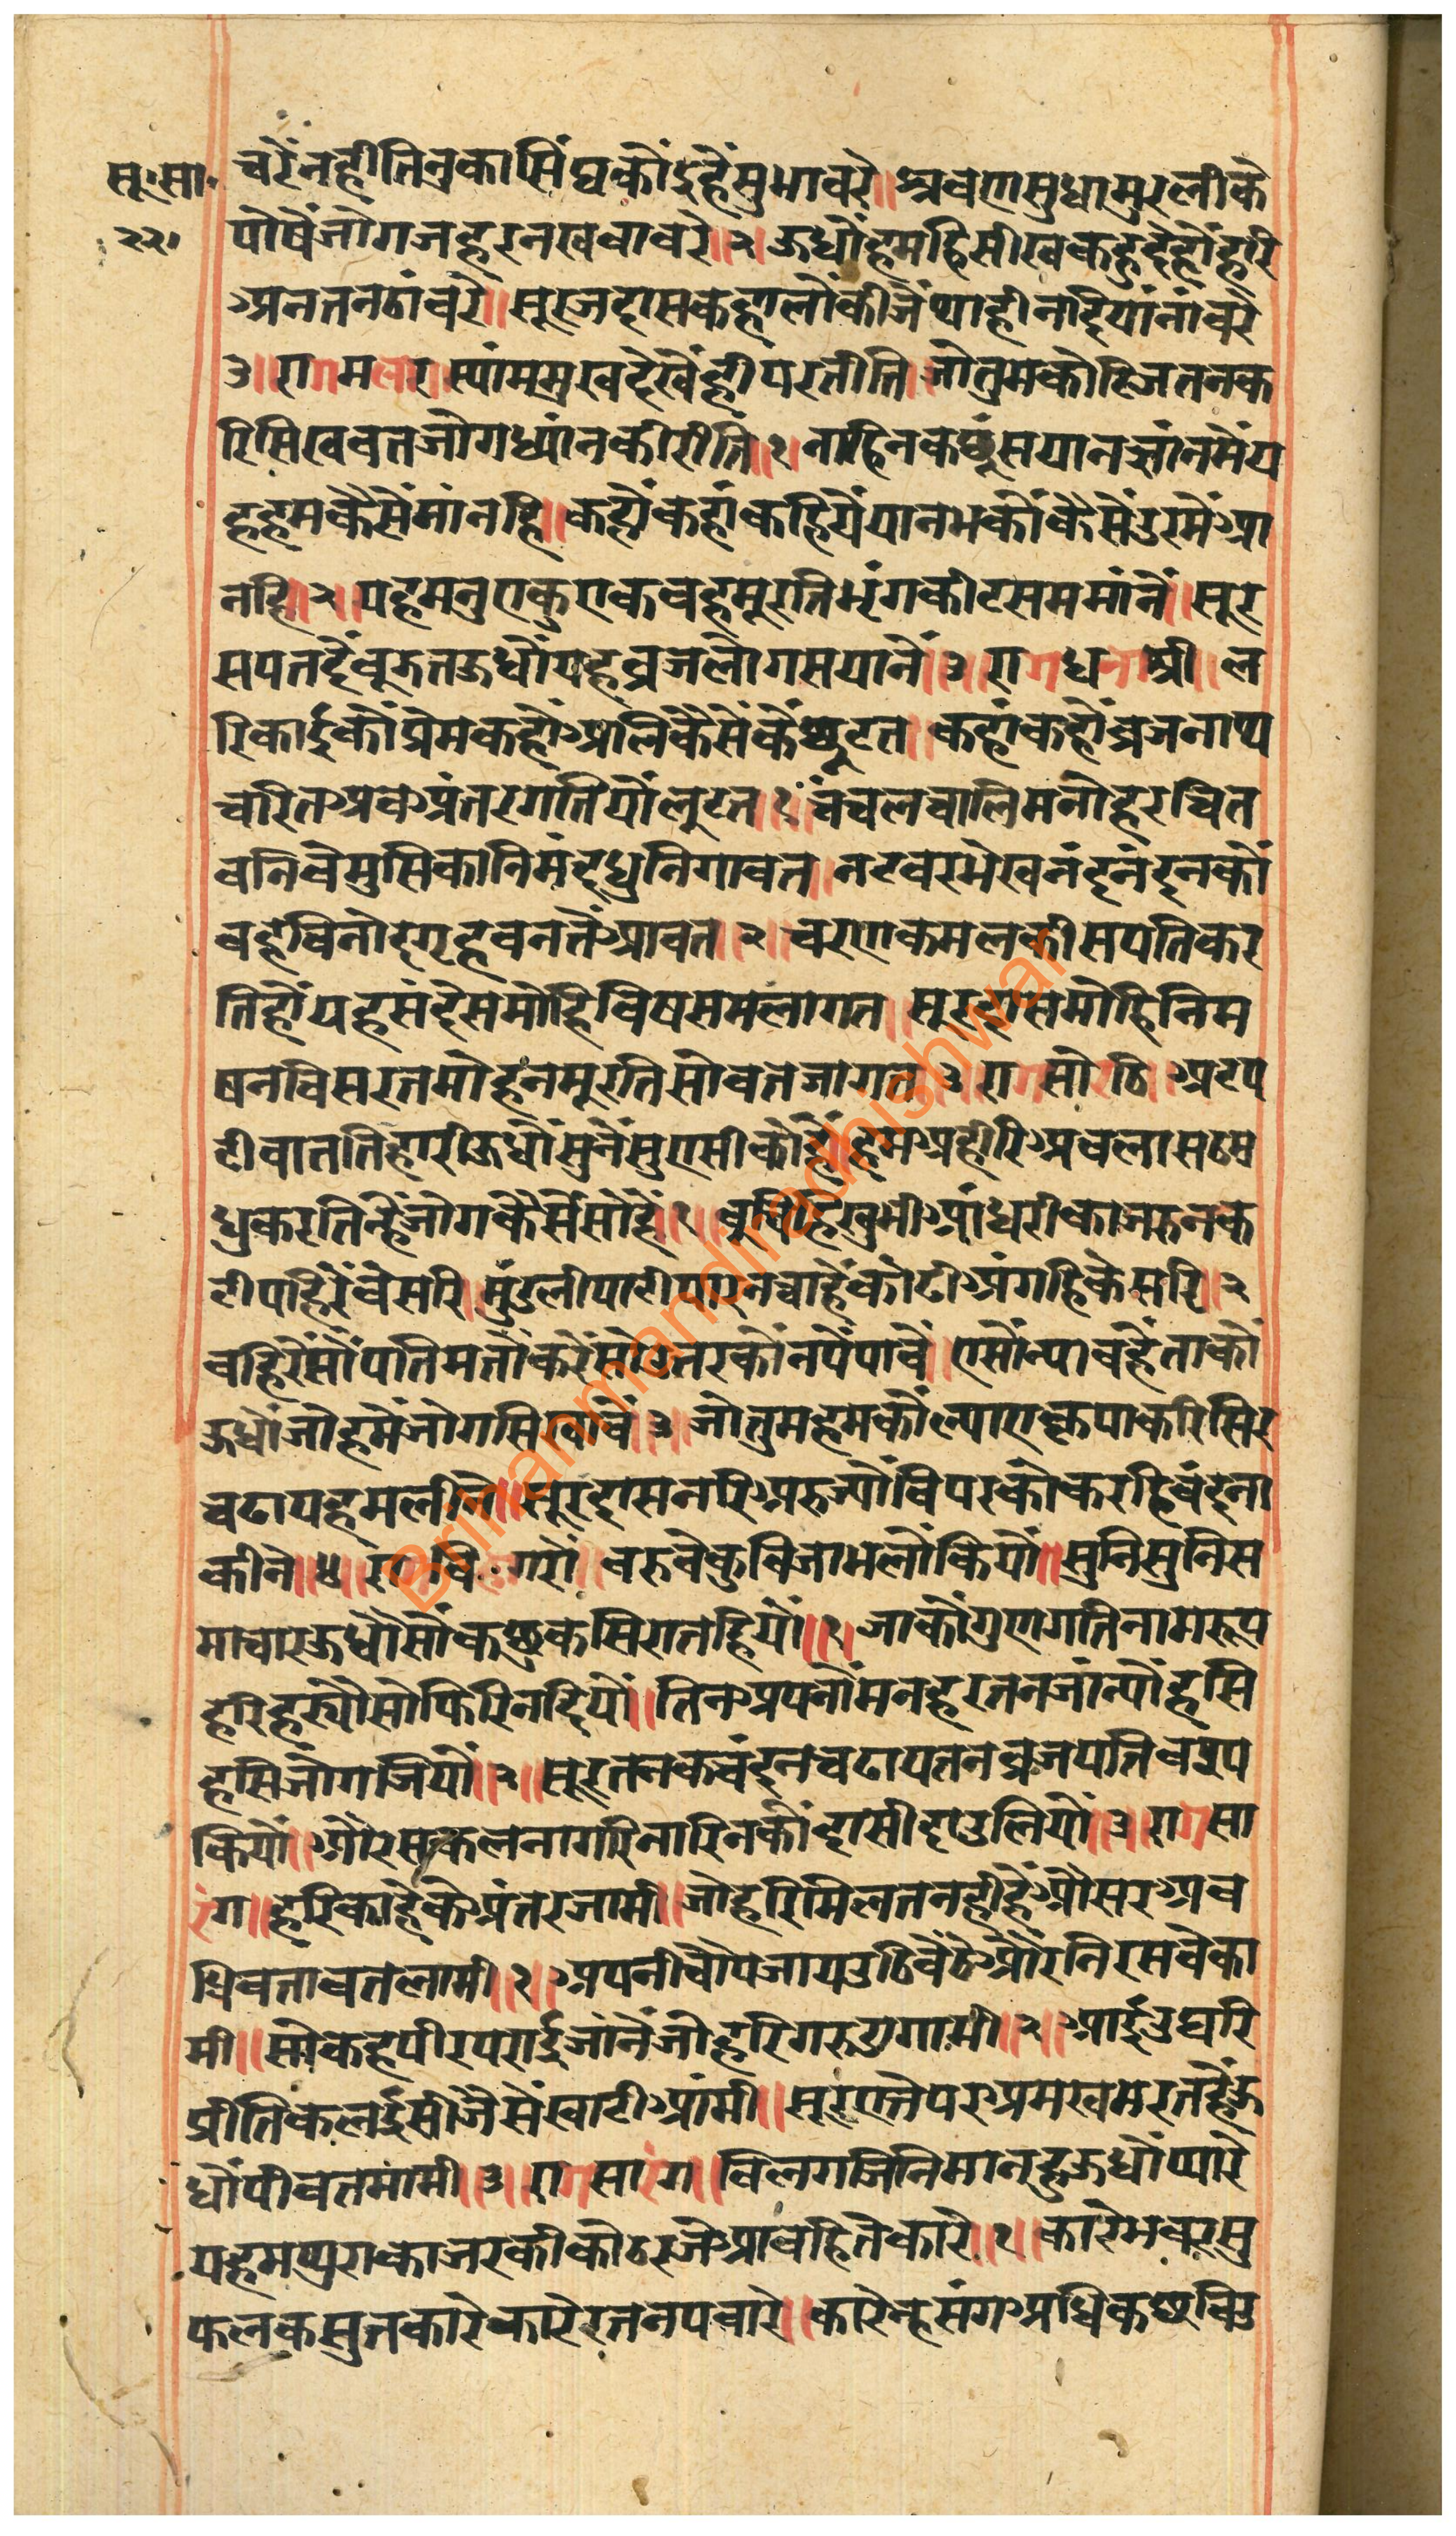 सू॰सा॰
२२।
चरेंनहीतिनुकासिंघकोंइहैंसुभावरे॥श्रवणसुधामुरलीके
पोषैंजोगजहरनखवावरे॥२॥ऊधौंहमहिसीखकहुदैहोंहरि
अनतनठांवरे॥सूरजदासकहालोंकीजैंथाहीनदियांनांवरे
३॥रागमलार॥स्यांममुखदेखेंहीपरतीति॥जोतुमकोटिजतनक
रिसिखवतजोगध्यांनकीरीति॥१॥नाहिनकछूंसयानज्ञांनमेंय
हहमकैसेंमांनहि॥कहोंकहांकहियेंयानभकोंकैसेंउरमेंआ
नहि॥२॥यहमनुएकुएकवहमूरतिभृंगकीटसममांनें॥सूर
सपतदैंबूझतऊधौंयहव्रजलोगसयाने॥३॥रागधनाश्री॥ल
रिकाईकौंप्रेमकहौंआलिकैसेंकैंछूटत॥कहांकहोंब्रजनाथ
चरितअबअंतरगतियोंलुटत॥१॥चंचलचालिमनोहरचित
वनिवेमुसिकानिमंदधुनिगावत॥नटवरभेखनंदनंदनकों
वहविनोदगृहवनतेंआवत॥२॥चरणकमलकीसपतिकर
तिहोंयहसंदेसमोहिविषसमलागत॥सूरदासमोहिनिम
षनविसरतमोहनमूरतिसोवतजागत॥३॥रागसोरठि॥अटप
टीवाततिहारीऊधौंसुनेंसुएसीकोहैं॥हमअहीरिअबलासठम
धुकरतिन्हैंजोगकैसेंसोहें॥१॥बुचिहिखुभीआंधरीकाजरुनक
टीपहिरेंवेसरि॥मुंडलीपाटीपारनचाहैंकोढीअंगहिकेसरि॥२
बहिरेंसौंपतिमतौंकरेंसोउतरकोंनपेंपावें॥एसोंन्यावहैंताकों
ऊधौंजोहमेंजोगसिखावें॥३॥जोतुमहमकोंल्याएकृपाकरिसिर
चढायहमलीने॥सूरदासनरिअरुज्योंविपरकोंकरहिवंदना
कीने॥४॥रागविहागरो॥वरुवेकुबिजाभलोंकियों॥सुनिसुनिस
माचारऊधौसोंकछुकसिरातहियों॥१॥जाकौंगुणगतिनामरूप
हरिहर्यौसोफिरिनदियों॥तिनअपनोंमनहरतनजांन्योंहसि
हसिजोगजियों॥२॥सूरतनकचंदनचढायतनव्रजपतिवश्य
कियों॥औरसकलनागरिनारिनकोंदासीदाउलियों॥३॥रागसा
रंग॥हरिकाहेकेअंतरजामी॥जोहरिमिलतनहीहैंऔसरअव
धिवतावतलामी॥१॥अपनीचोपजायउठिबैठेऔरनिरसवेका
मी॥सोकहपीरपराईजांनेंजोहरिगरुडगामी॥२॥आईउघरि
प्रीतिकलईसीजैसेंखाटीआंमी॥सूरएतेपरअमखमरतहैंऊ
धौंपीवतमांमी॥३॥रागसारंग॥विलगजिनिमानहुऊधौंप्यारे
यहमथुराकाजरकीकोठरजेआवहितेकारे॥१॥कारेभवरसु
फलकसुतकारेकारेरतनपवारे॥कारेन्हसंगअधिकछविउ